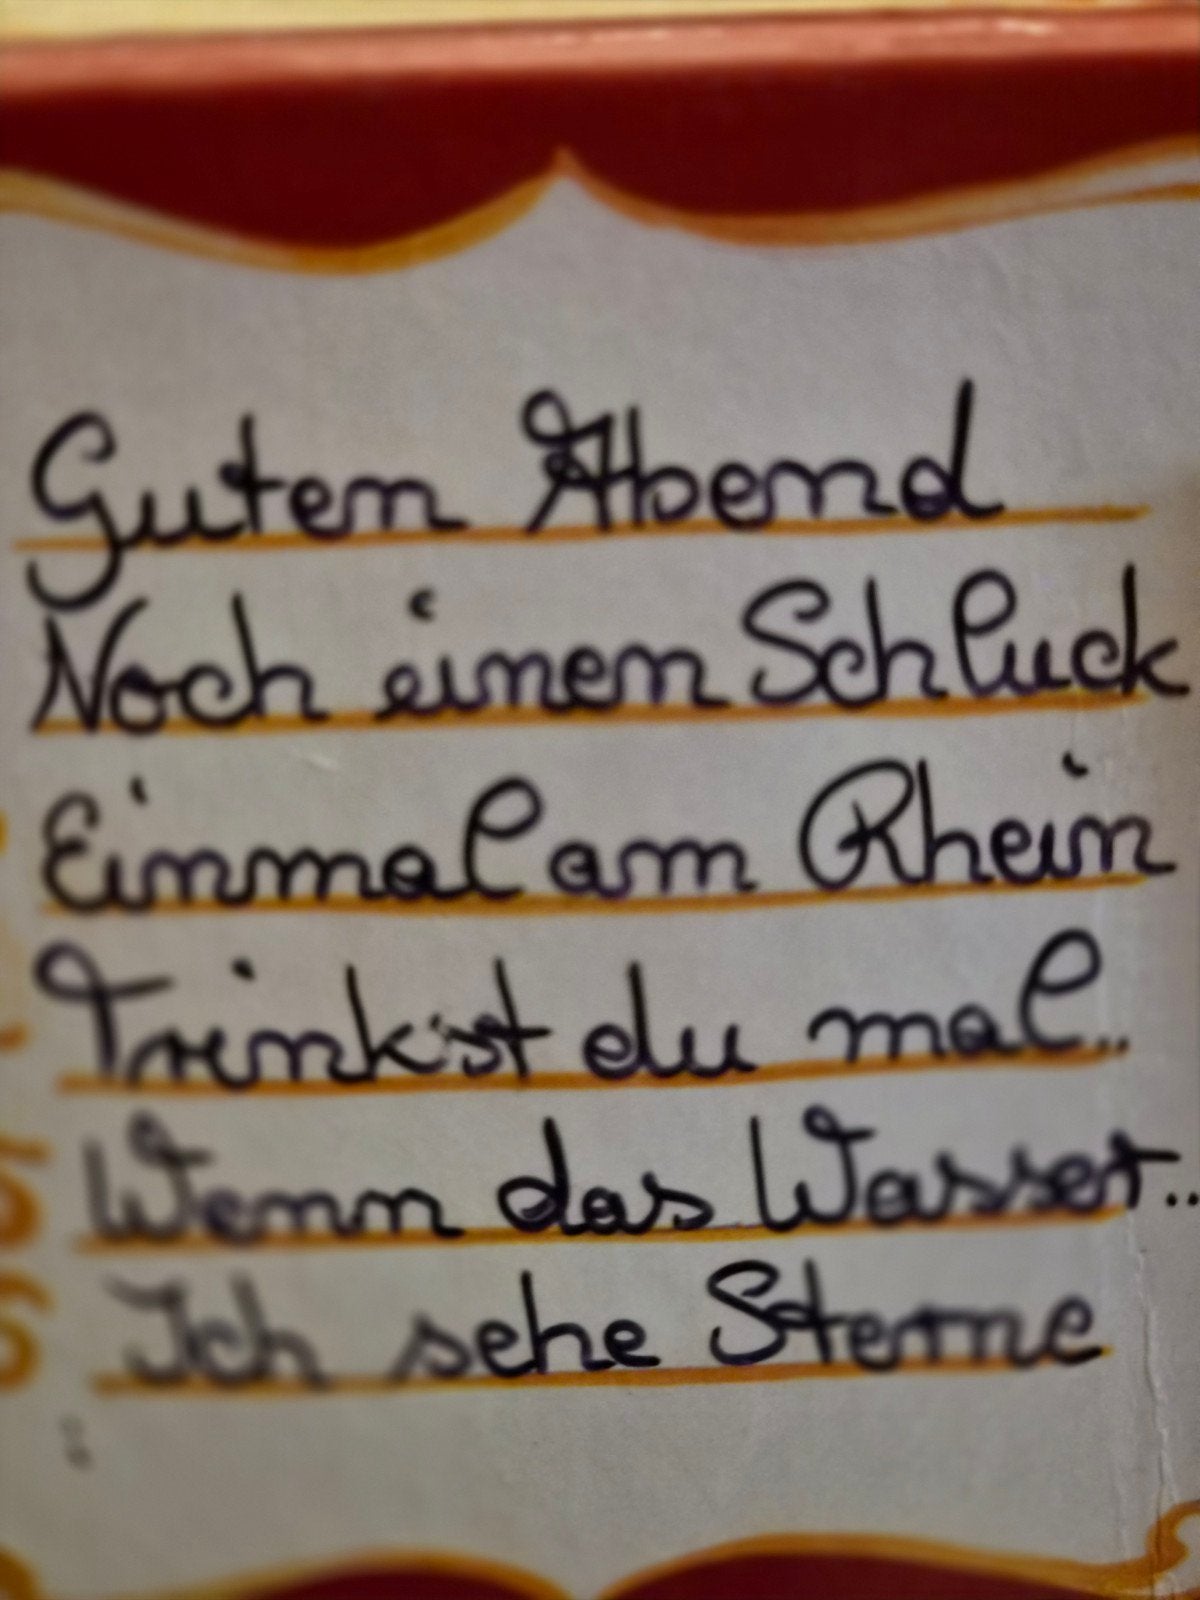 Guten Abend
Noch einen Schluck
Einmal am Rhein
Trinkst du mal..
Wenn das Wasser..
Ich sehe Sterne